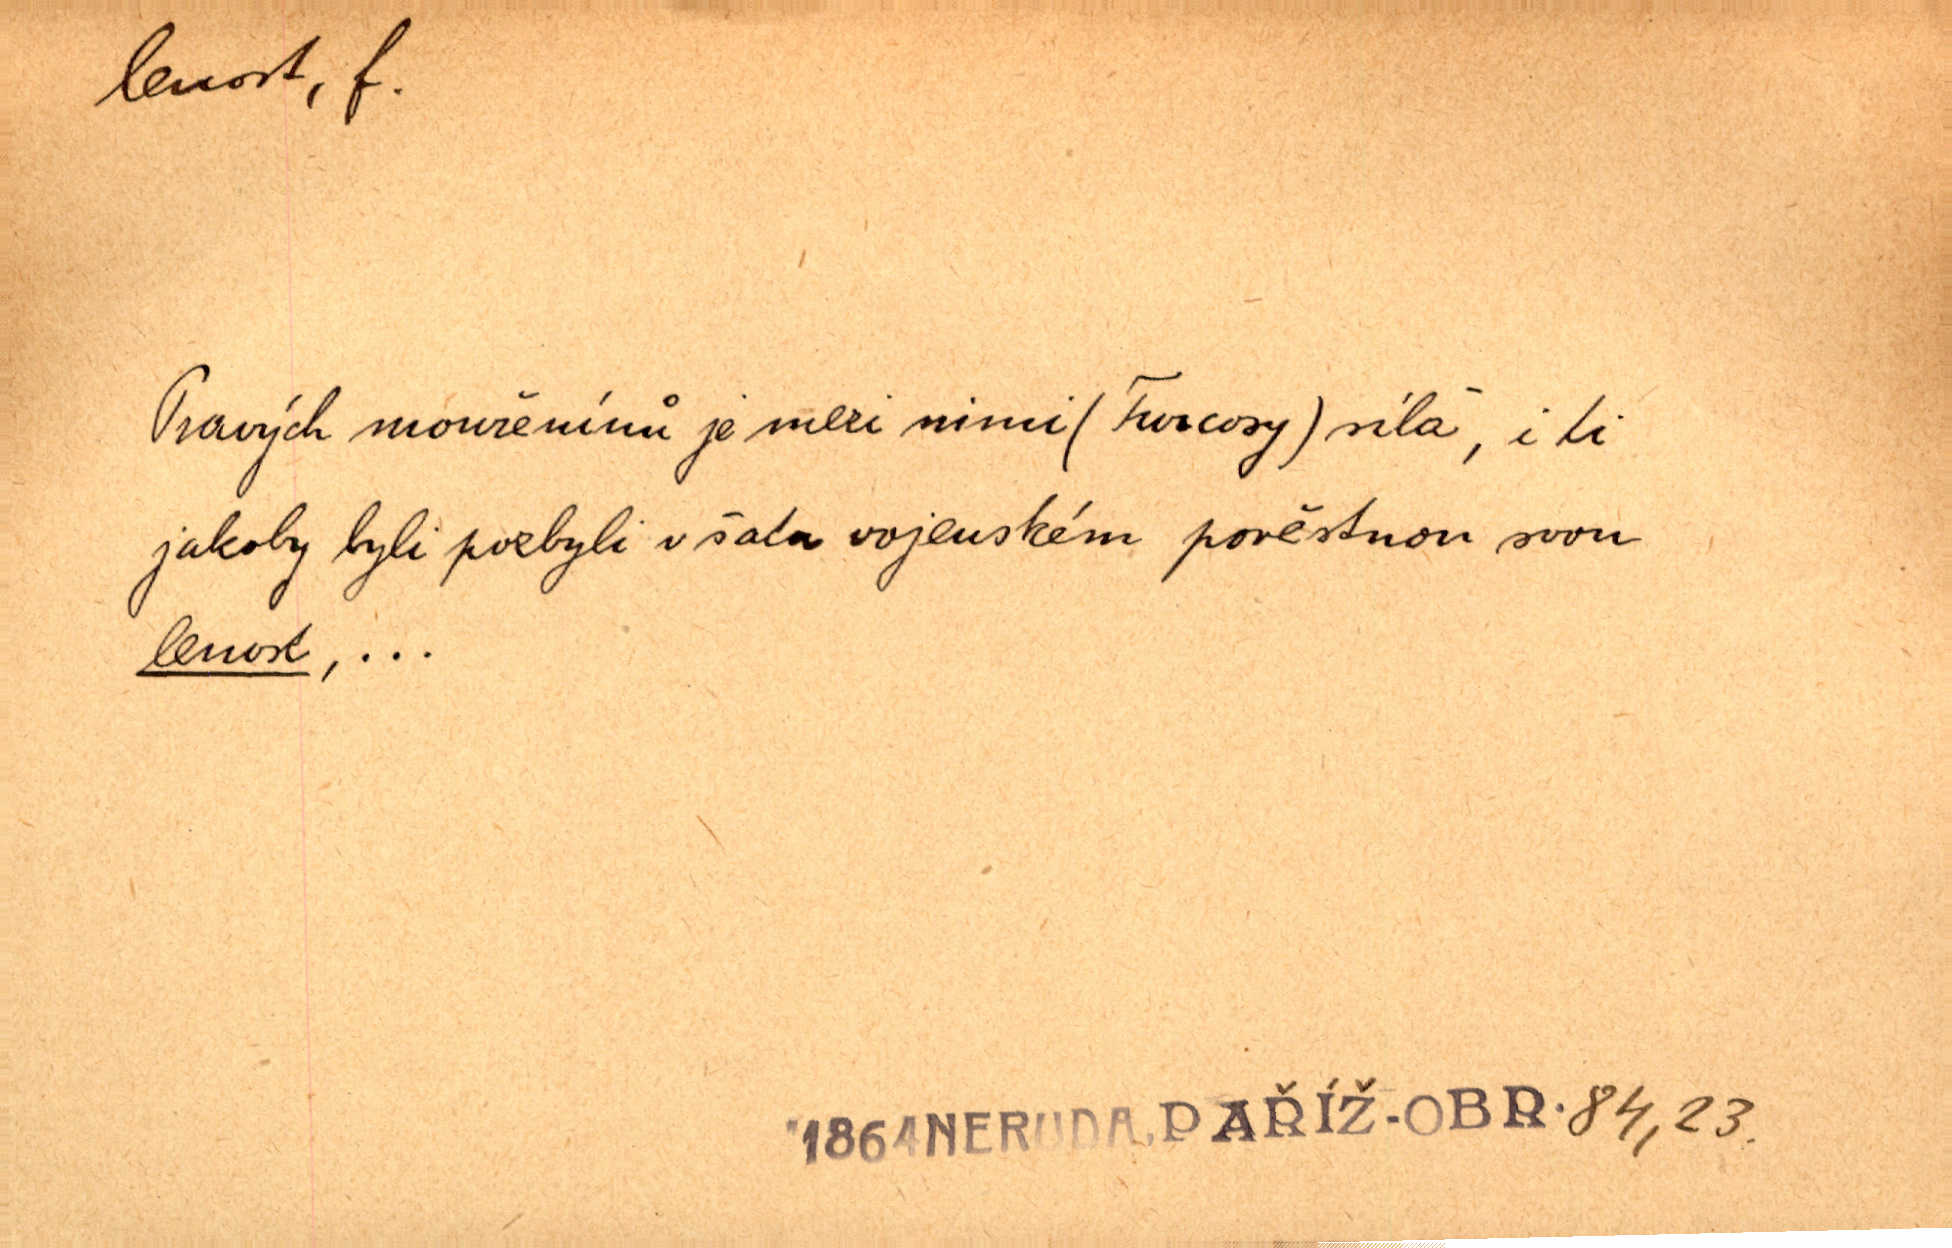 lenost, f.
Pravých mouřenínů je mezi nimi (Turcosy) síla, i ti
jakoby byli pozbyli v šatu vojenském pověstnou svou
lenost, ...
1864 NERUDA, PAŘÍŽ-OBR. 84, 23.